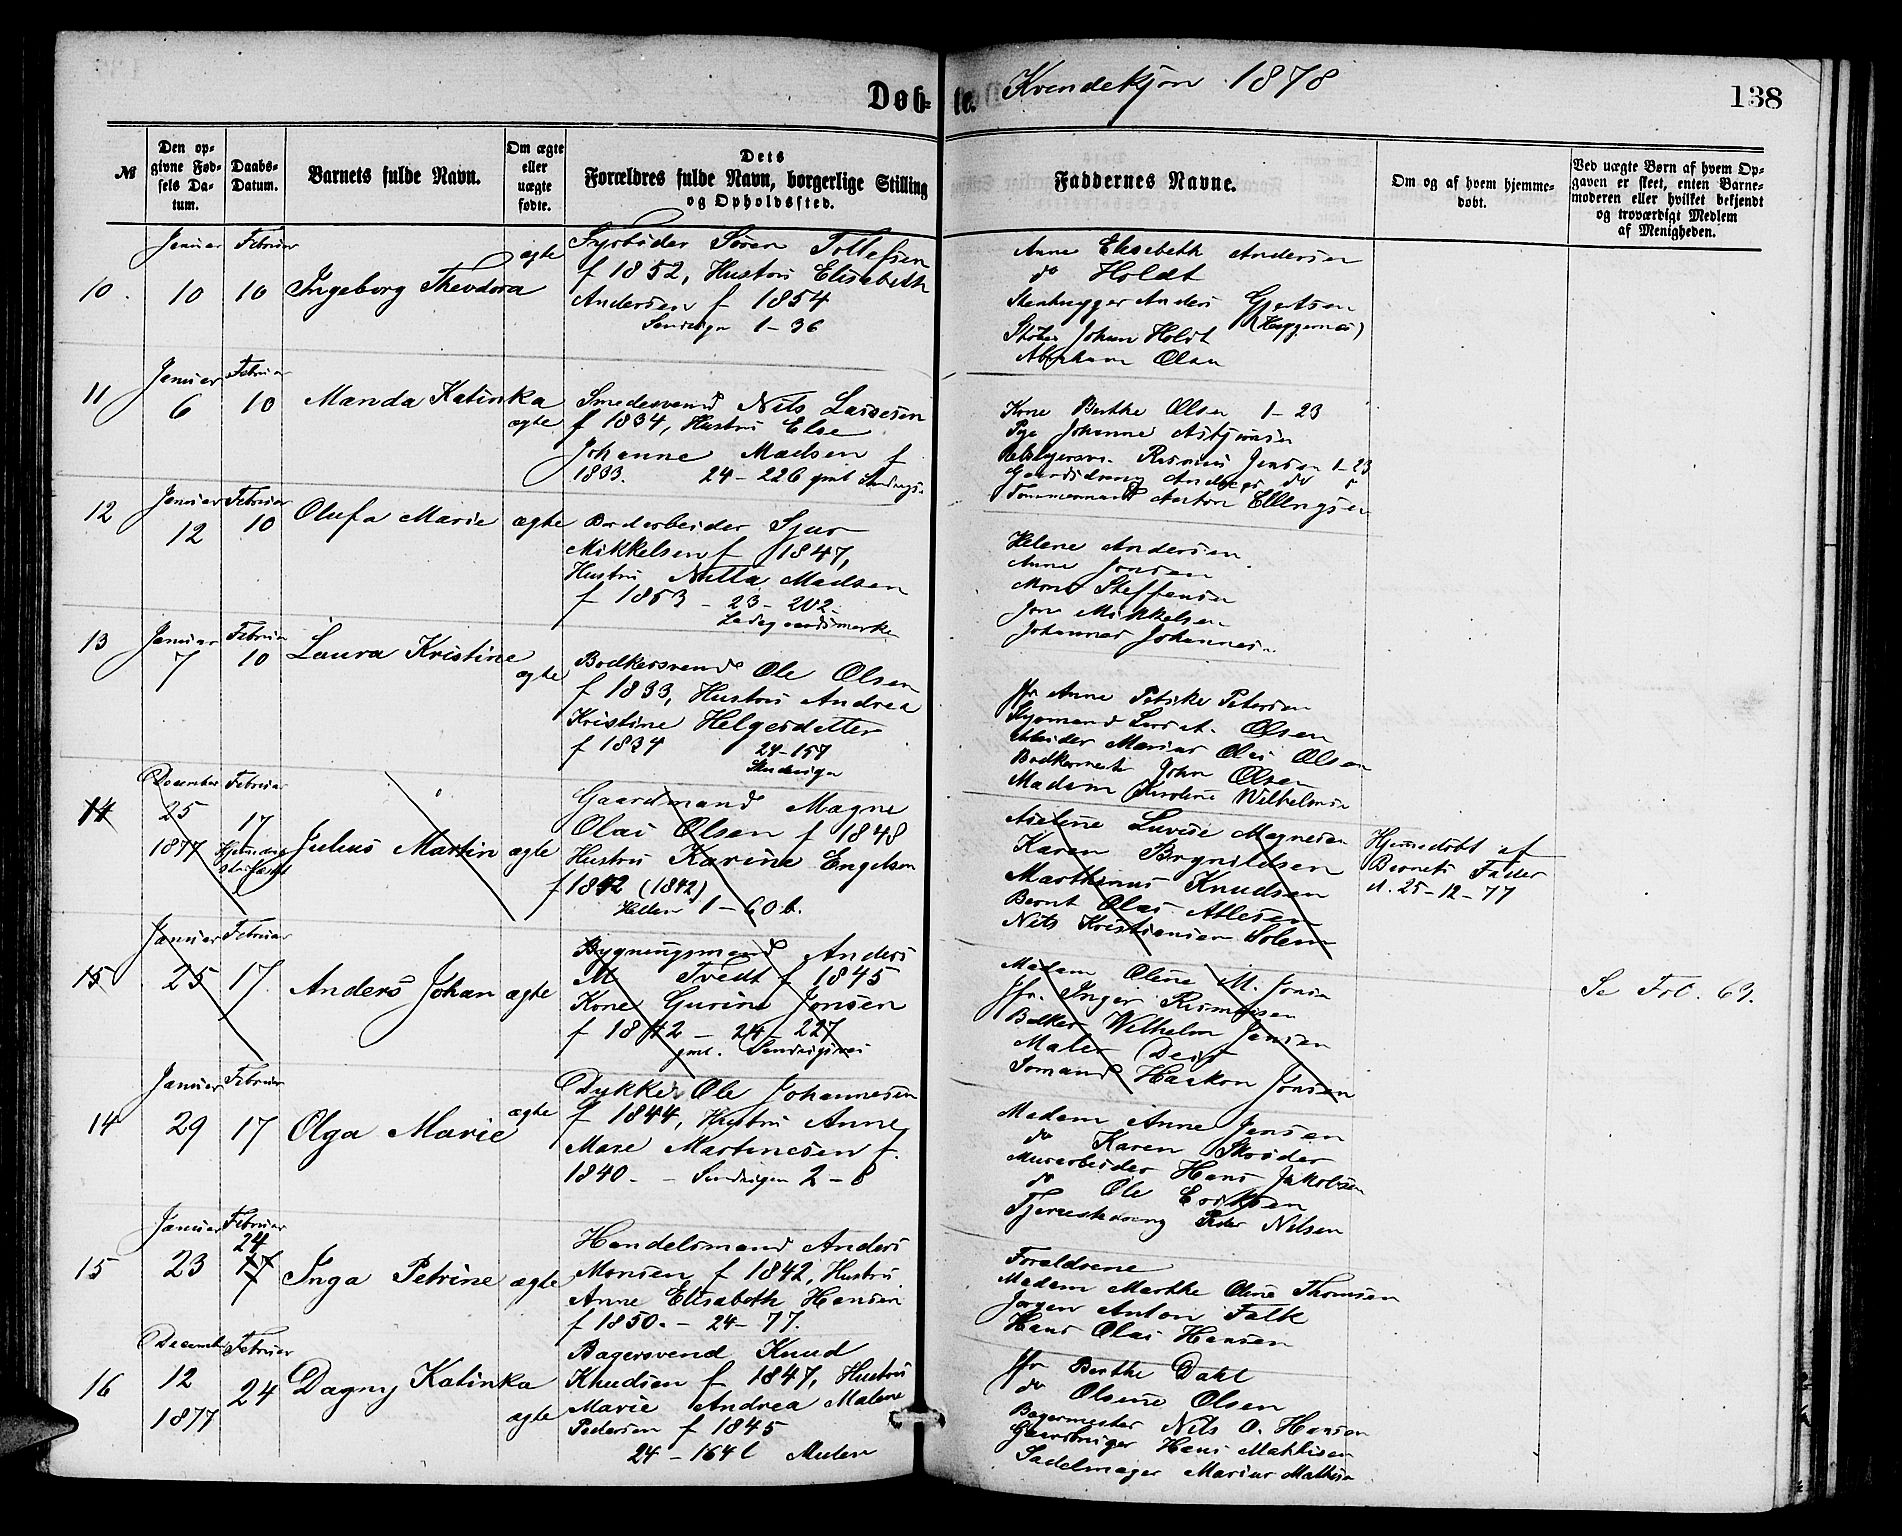 Døb-
te.
Kvindekjøn 1878
138
№
Den op-
givne Fød-
sels Da-
tum.
Daabs-
Datum.
Barnets fulde Navn.
Om ægte
eller
uægte
fødte.
Dets
Forældres fulde Navn, borgerlige Stilling
og Opholdssted.
Faddernes Navne.
Om og af hvem hjemme-
døbt.
Ved uægte Børn af hvem Op-
gaven er skeet, enten Barne-
moderen eller hvilket bekjendt
og troværdigt Medlem
af Menigheden.
10.
Januar
10
Februar
10
Ingeborg Theodora
ægte
Fyrbøder Søren Tollefsen
f 1852, Hustru Elisabeth
Andersen f 1854
Sandvigen 1-36
Anne Elisabeth Andersen
do Holdt
Stenhugger Anders Gjertsen
Johan Holdt
Abraham Olsen
11
Januar
6
Februar
10
Manda Katinka
ægte
Smedesvend Nils Lassesen
f 1834, Hustru Else
Johanne Madsen f
1833. 24-226
Kone Berthe Olsen 1-23
Pige Johanne
Rasmus Jensen 1-23
Gaardsdreng Andreas do
Tømmermand Anton Ellingsen
12
Januar
12
Februar
10
Olufa Marie
ægte
Sjur
Mikkelsen f 1847,
Hustru Nilla Madsen
f 1853 - 23-202
Ladegaardsmarken
Helene Andersen
Anne Jonsen
Mons Steffensen
Jon Mikkelsen
Johannes Johannesen
13
Januar
7
Februar
10
Laura Kristine
ægte
Bødkersvend Ole Olsen
f 1833, Hustru Andrea
Kristine Helgesdatter
f 1834 24-157
Sandvigen
Jfr Anne Petersen
Olsen
Arbeider Marius Olai Olsen
John Olsen
Madam Karoline Wilhelmsen
14
December
25
1877
Februar
17
Julius Martin
ægte
Gaardmand Magne
Olai Olsen f 1848
Hustru Karine Engelsen
f 1842 (1842)
Hellen 1-60 b.
Luvise Magnesen
Karen Brynildsen
Marthinus Knudsen
Bernt Olai Atlesen
Nils Kristiansen Solem
Hjemmedøbt af
Barnets Fader
d. 25-12-77
15
Januar
25
Februar
17.
Anders Johan
ægte
Bygningsmand Anders
M Tvedt f 1845
Kone Gurine Jonsen
f 1842 - 24-227
gml. Sandvigsvei
Madam Oline M. Jonsen
Jfr. Inger Rasmusen
Bødker Wilhelm Jensen
Maler
Sømand Haakon Jonsen
Se Fol. 63.
14
Januar
29
Februar
17
Olga Marie
ægte
Dykker Ole Johannesen
f 1844, Hustru Anne
Marie Martinesen f.
1840. - Sandvigen 2-8
Madam Anne Jensen
do Karen Skrøder
Murarbeider Hans Jakobsen
do Ole Eriksen
Tjenestedreng Peder Nilsen
15
Januar
23
Februar
24
17
Inga Petrine
ægte
Handelsmand Anders
Monsen f 1842, Hustru
Anne Elisabeth Hansen
f 1850. - 24-77.
Forældrene
Madam Marthe Oline Thomsen
Jørgen Anton Falk
Hans Olai Hansen
16
December
12
1877
Februar
24
Dagny Katinka
ægte
Bagersvend Knud
Knudsen f 1847, Hustru
Marie Andrea Malene
Pedersen f 1845
24-164 b Mulen
Jfr Berthe Dahl
do Olsine Olsen
Bagermester Nils O. Hansen
Gaardbruger Hans Mathisen
Sadelmager Marius Mathisen